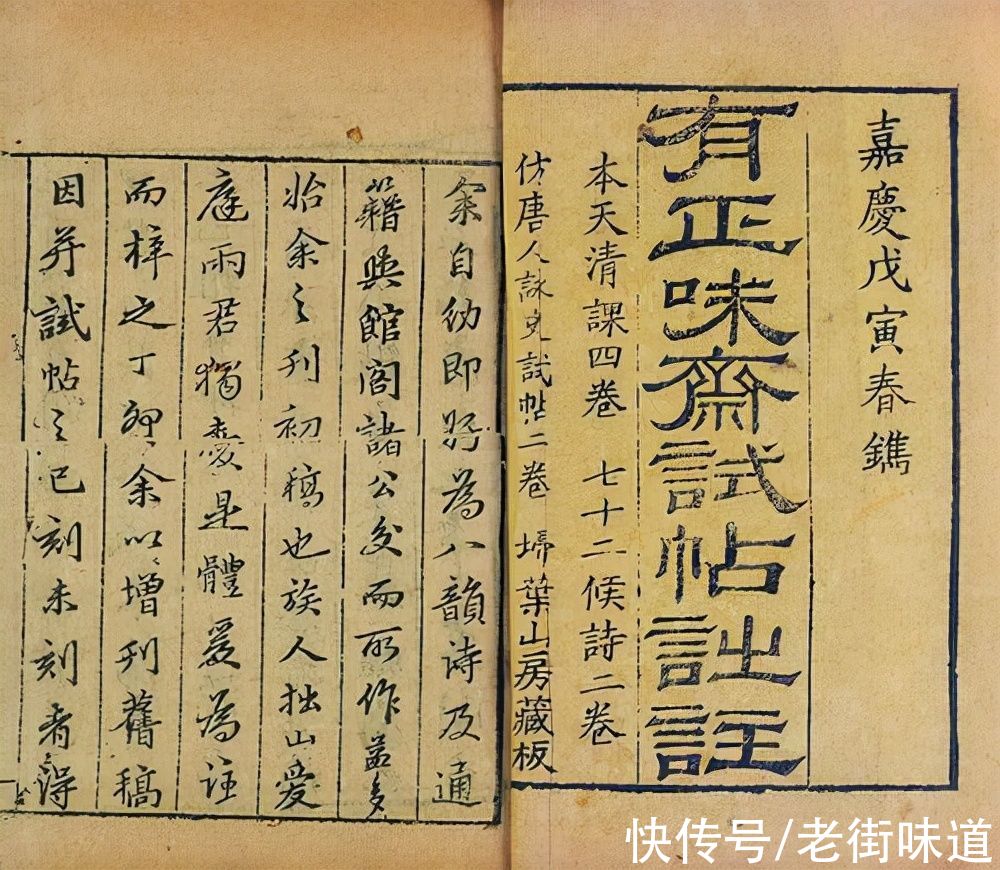 嘉慶戊寅春鐫
有正味齋試帖詩註
本天清課四卷 七十二候詩二卷
仿唐人詠史試帖二卷 埽葉山房藏板
余自幼即好為八韻詩及通
籍與館閣諸公交而所作益多
始余之刊初稿也族人拙山愛
庭兩君獨愛是體爰為註
而梓之丁卯余以增刊舊稿
因并試帖之已刻未刻者得
快传号/老街味道